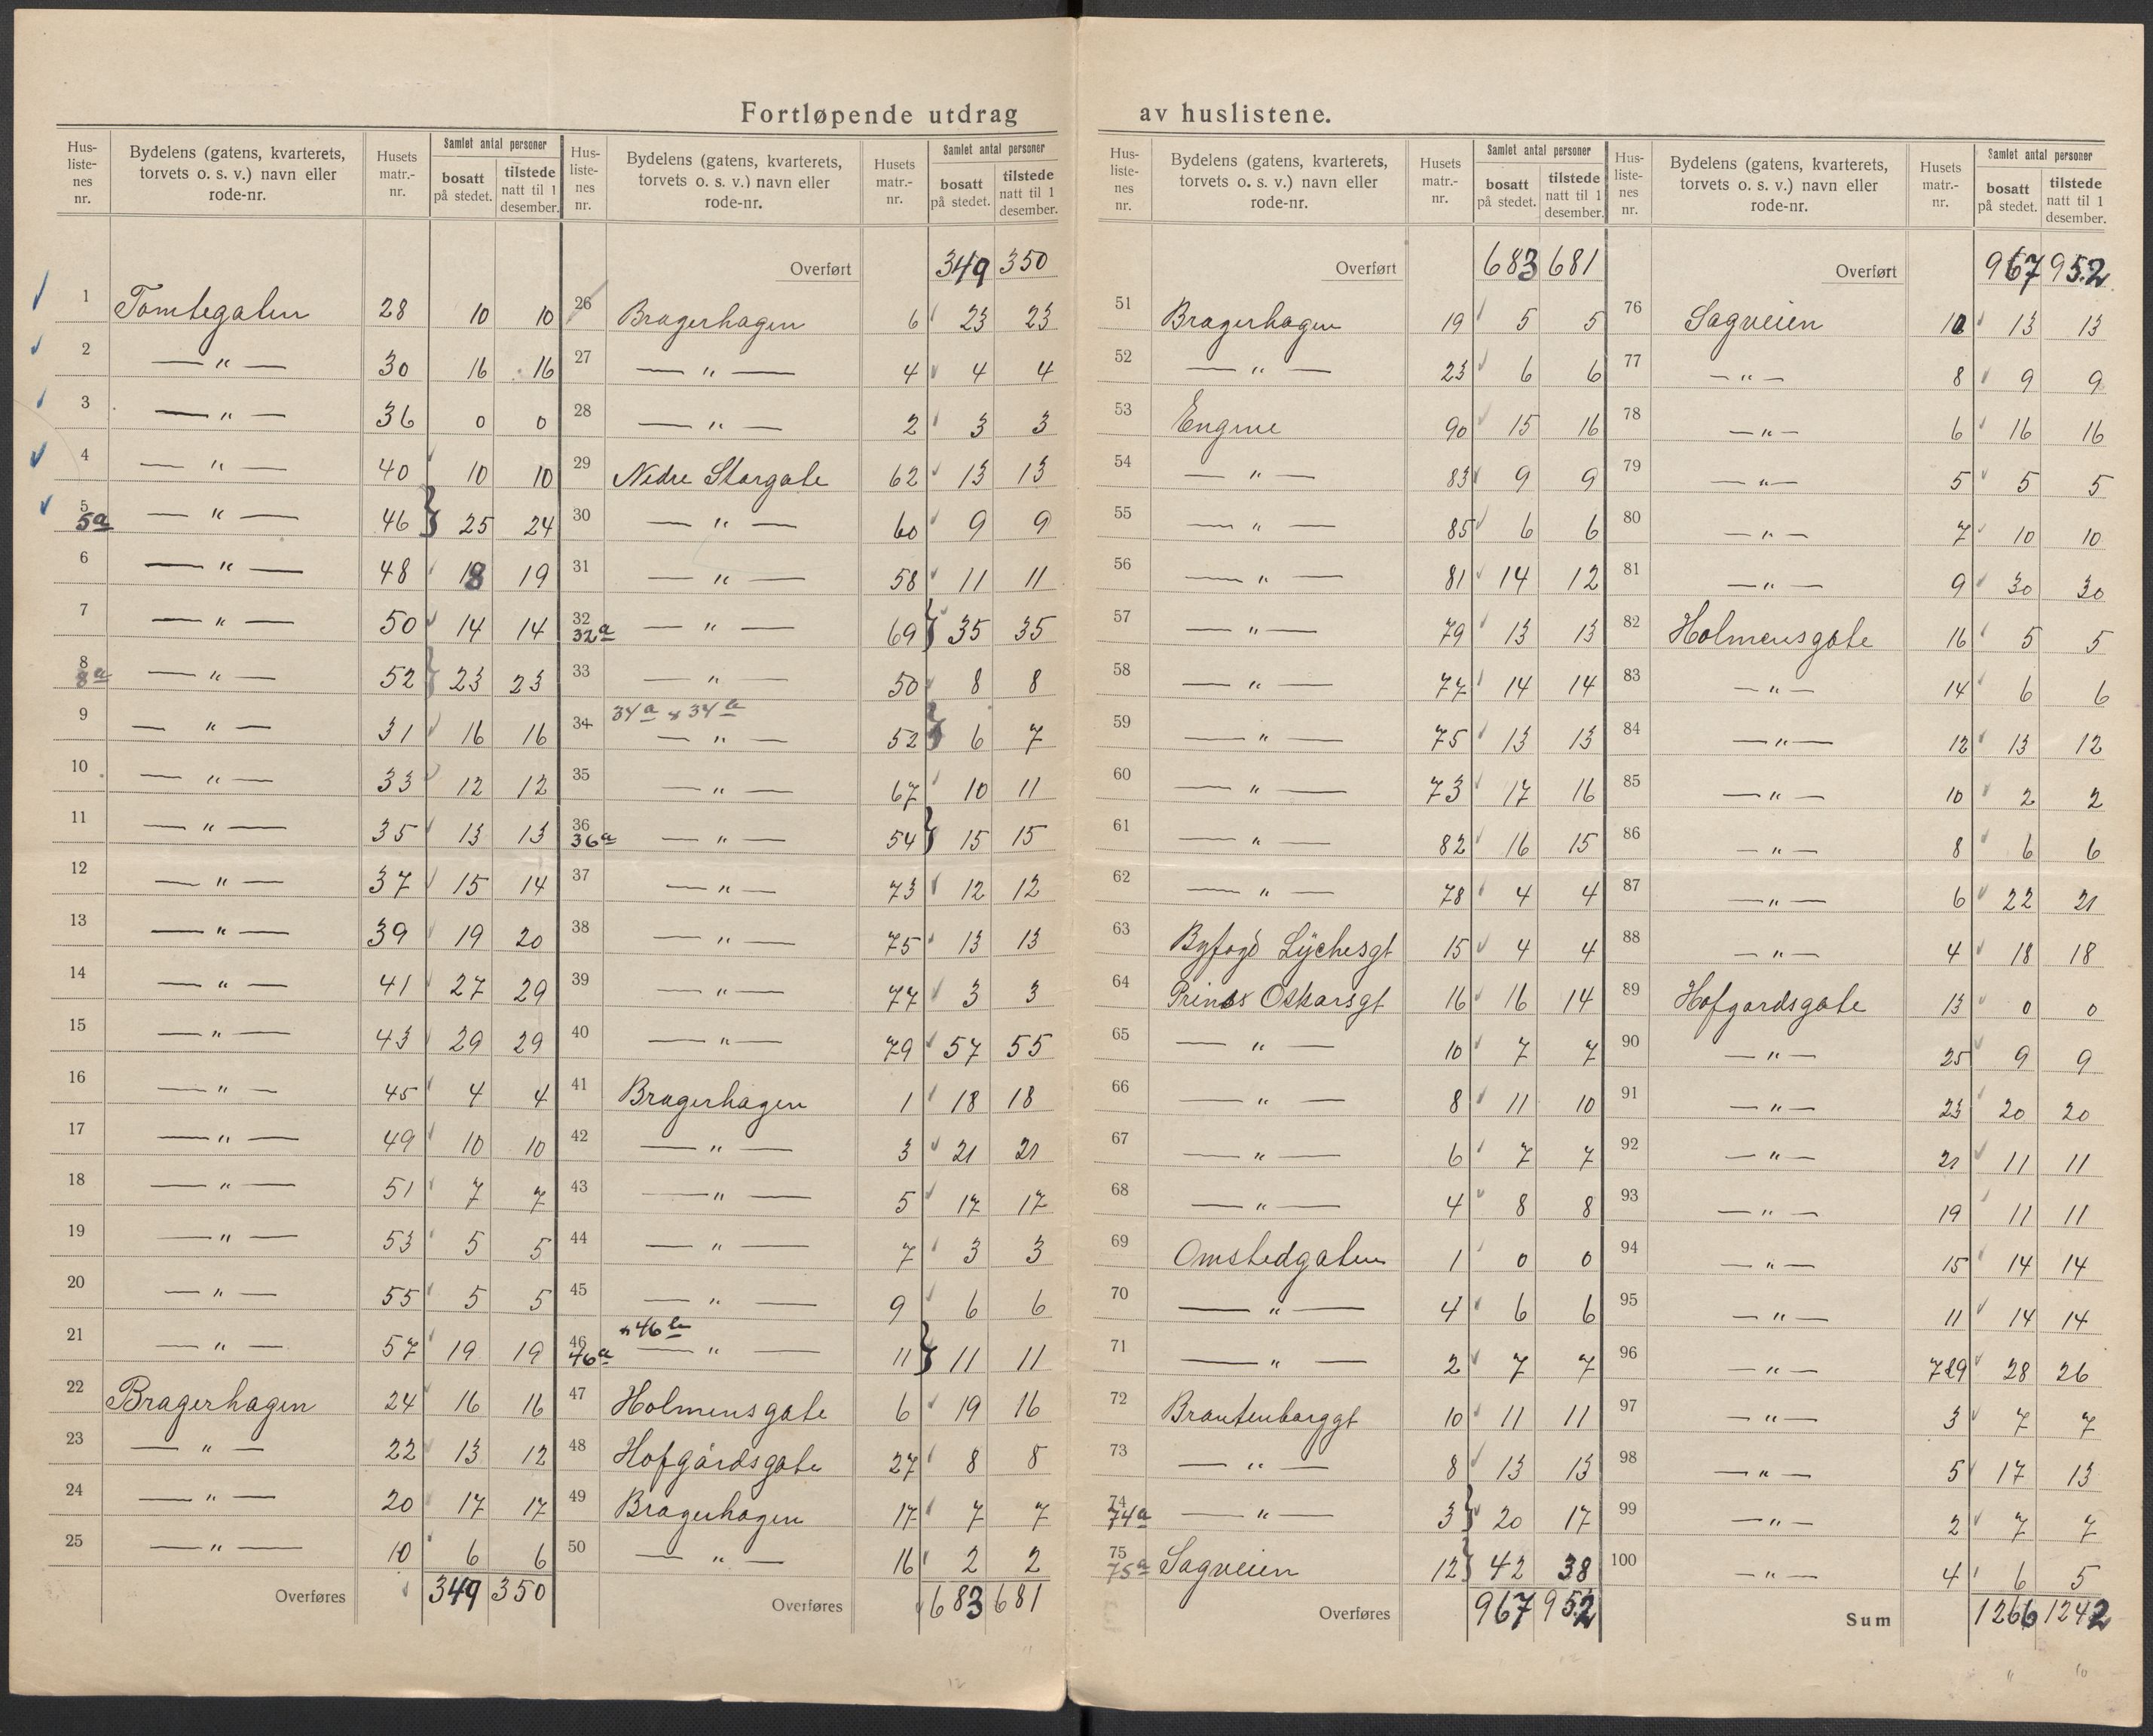 Fortløpende utdrag av huslistene.
Hus-listenes nr. | Bydelens (gatens, kvarterets, torvets o. s. v.) navn eller rode-nr. | Husets matr.-nr. | Samlet antal personer bosatt på stedet. | tilstede natt til 1 desember.
1 Tomtegaten 28 10 10
2 — " — 30 16 16
3 — " — 36 0 0
4 — " — 40 10 10
5 5a — " — 46 } 25 24
6 — " — 48 18 19
7 — " — 50 14 14
8 8a — " — 52 } 23 23
9 — " — 31 16 16
10 — " — 33 12 12
11 — " — 35 13 13
12 — " — 37 15 14
13 — " — 39 19 20
14 — " — 41 27 29
15 — " — 43 29 29
16 — " — 45 4 4
17 — " — 49 10 10
18 — " — 51 7 7
19 — " — 53 5 5
20 — " — 55 5 5
21 — " — 57 19 19
22 Bragerhagen 24 16 16
23 — " — 22 13 12
24 — " — 20 17 17
25 — " — 10 6 6
Overføres 349 350
Hus-listenes nr. | Bydelens (gatens, kvarterets, torvets o. s. v.) navn eller rode-nr. | Husets matr.-nr. | Samlet antal personer bosatt på stedet. | tilstede natt til 1 desember.
Overført 349 350
26 Bragerhagen 6 23 23
27 — " — 4 4 4
28 — " — 2 3 3
29 Nedre Storgate 62 13 13
30 — " — 60 9 9
31 — " — 58 11 11
32 32a — " — 69 } 35 35
33 — " — 50 8 8
34 34a & 34a — " — 52 } 6 7
35 — " — 67 10 11
36 36a — " — 54 } 15 15
37 — " — 73 12 12
38 — " — 75 13 13
39 — " — 77 3 3
40 — " — 79 57 55
41 Bragerhagen 1 18 18
42 — " — 3 21 21
43 — " — 5 17 17
44 — " — 7 3 3
45 — " — 9 6 6
46 46a & 46b — " — 11 } 11 11
47 Holmensgate 6 19 16
48 Hofgårdsgate 27 8 8
49 Bragerhagen 17 7 7
50 — " — 16 2 2
Overføres 683 681
Hus-listenes nr. | Bydelens (gatens, kvarterets, torvets o. s. v.) navn eller rode-nr. | Husets matr.-nr. | Samlet antal personer bosatt på stedet. | tilstede natt til 1 desember.
Overført 683 681
51 Bragerhagen 19 5 5
52 — " — 23 6 6
53 Engene 90 15 16
54 — " — 83 9 9
55 — " — 85 6 6
56 — " — 81 14 12
57 — " — 79 13 13
58 — " — 77 14 14
59 — " — 75 13 13
60 — " — 73 17 16
61 — " — 82 16 15
62 — " — 78 4 4
63 Byfogd Lychesgt 15 4 4
64 Prins Oskarsgt 16 16 14
65 — " — 10 7 7
66 — " — 8 11 10
67 — " — 6 7 7
68 — " — 4 8 8
69 Omstedgaten 1 0 0
70 — " — 4 6 6
71 — " — 2 7 7
72 Brantenborggt 10 11 11
73 — " — 8 13 13
74 74a — " — 3 } 20 17
75 75a Sagveien 12 } 42 38
Overføres 967 952
Hus-listenes nr. | Bydelens (gatens, kvarterets, torvets o. s. v.) navn eller rode-nr. | Husets matr.-nr. | Samlet antal personer bosatt på stedet. | tilstede natt til 1 desember.
Overført 967 952
76 Sagveien 10 13 13
77 — " — 8 9 9
78 — " — 6 16 16
79 — " — 5 5 5
80 — " — 7 10 10
81 — " — 9 30 30
82 Holmensgate 16 5 5
83 — " — 14 6 6
84 — " — 12 13 12
85 — " — 10 2 2
86 — " — 8 6 6
87 — " — 6 22 21
88 — " — 4 18 18
89 Hofgardsgate 13 0 0
90 — " — 25 9 9
91 — " — 23 20 20
92 — " — 21 11 11
93 — " — 19 11 11
94 — " — 15 14 14
95 — " — 11 14 14
96 — " — 789 28 26
97 — " — 3 7 7
98 — " — 5 17 13
99 — " — 2 7 7
100 — " — 4 6 5
Sum 1266 1242